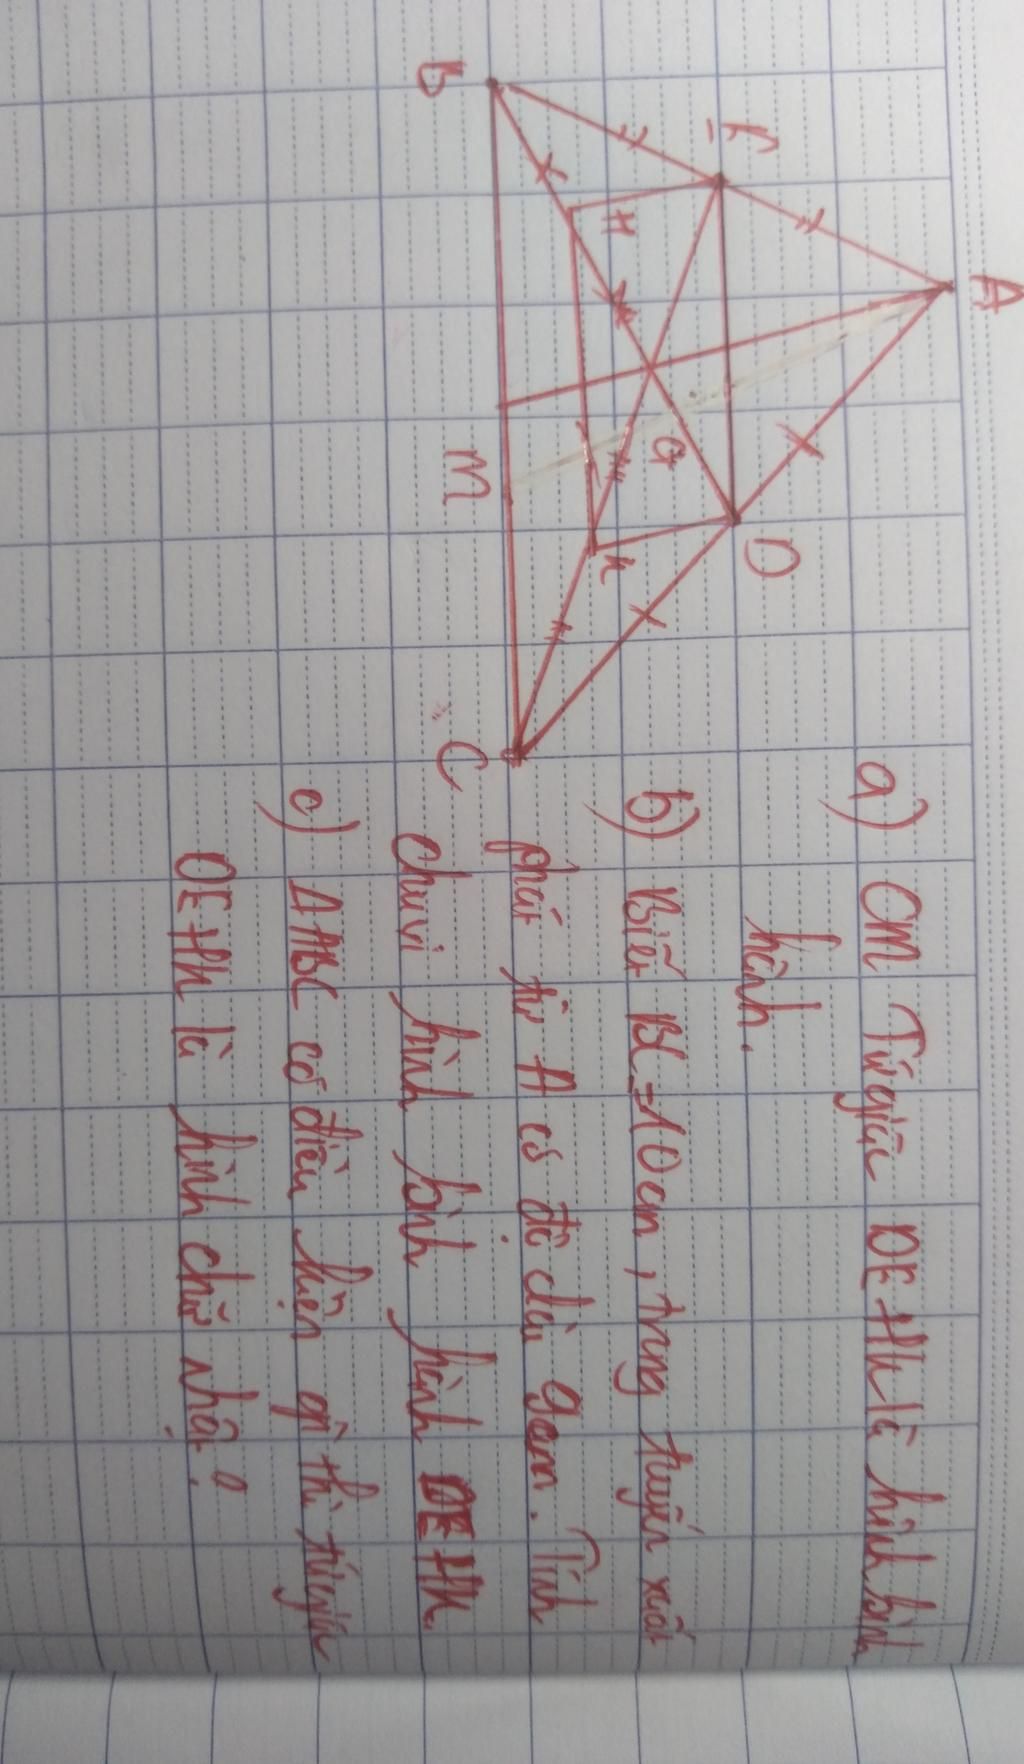 A
E
D
H
G
K
B
M
C
a) CM Tứ giác DEHK là hình bình
hành.
b) Biết BC=10cm, trung tuyến xuất
phát từ A có độ dài 9cm. Tính
chu vi hình bình hành DEHK
c) ΔABC có điều kiện gì thì tứ giác
DEHK là hình chữ nhật?